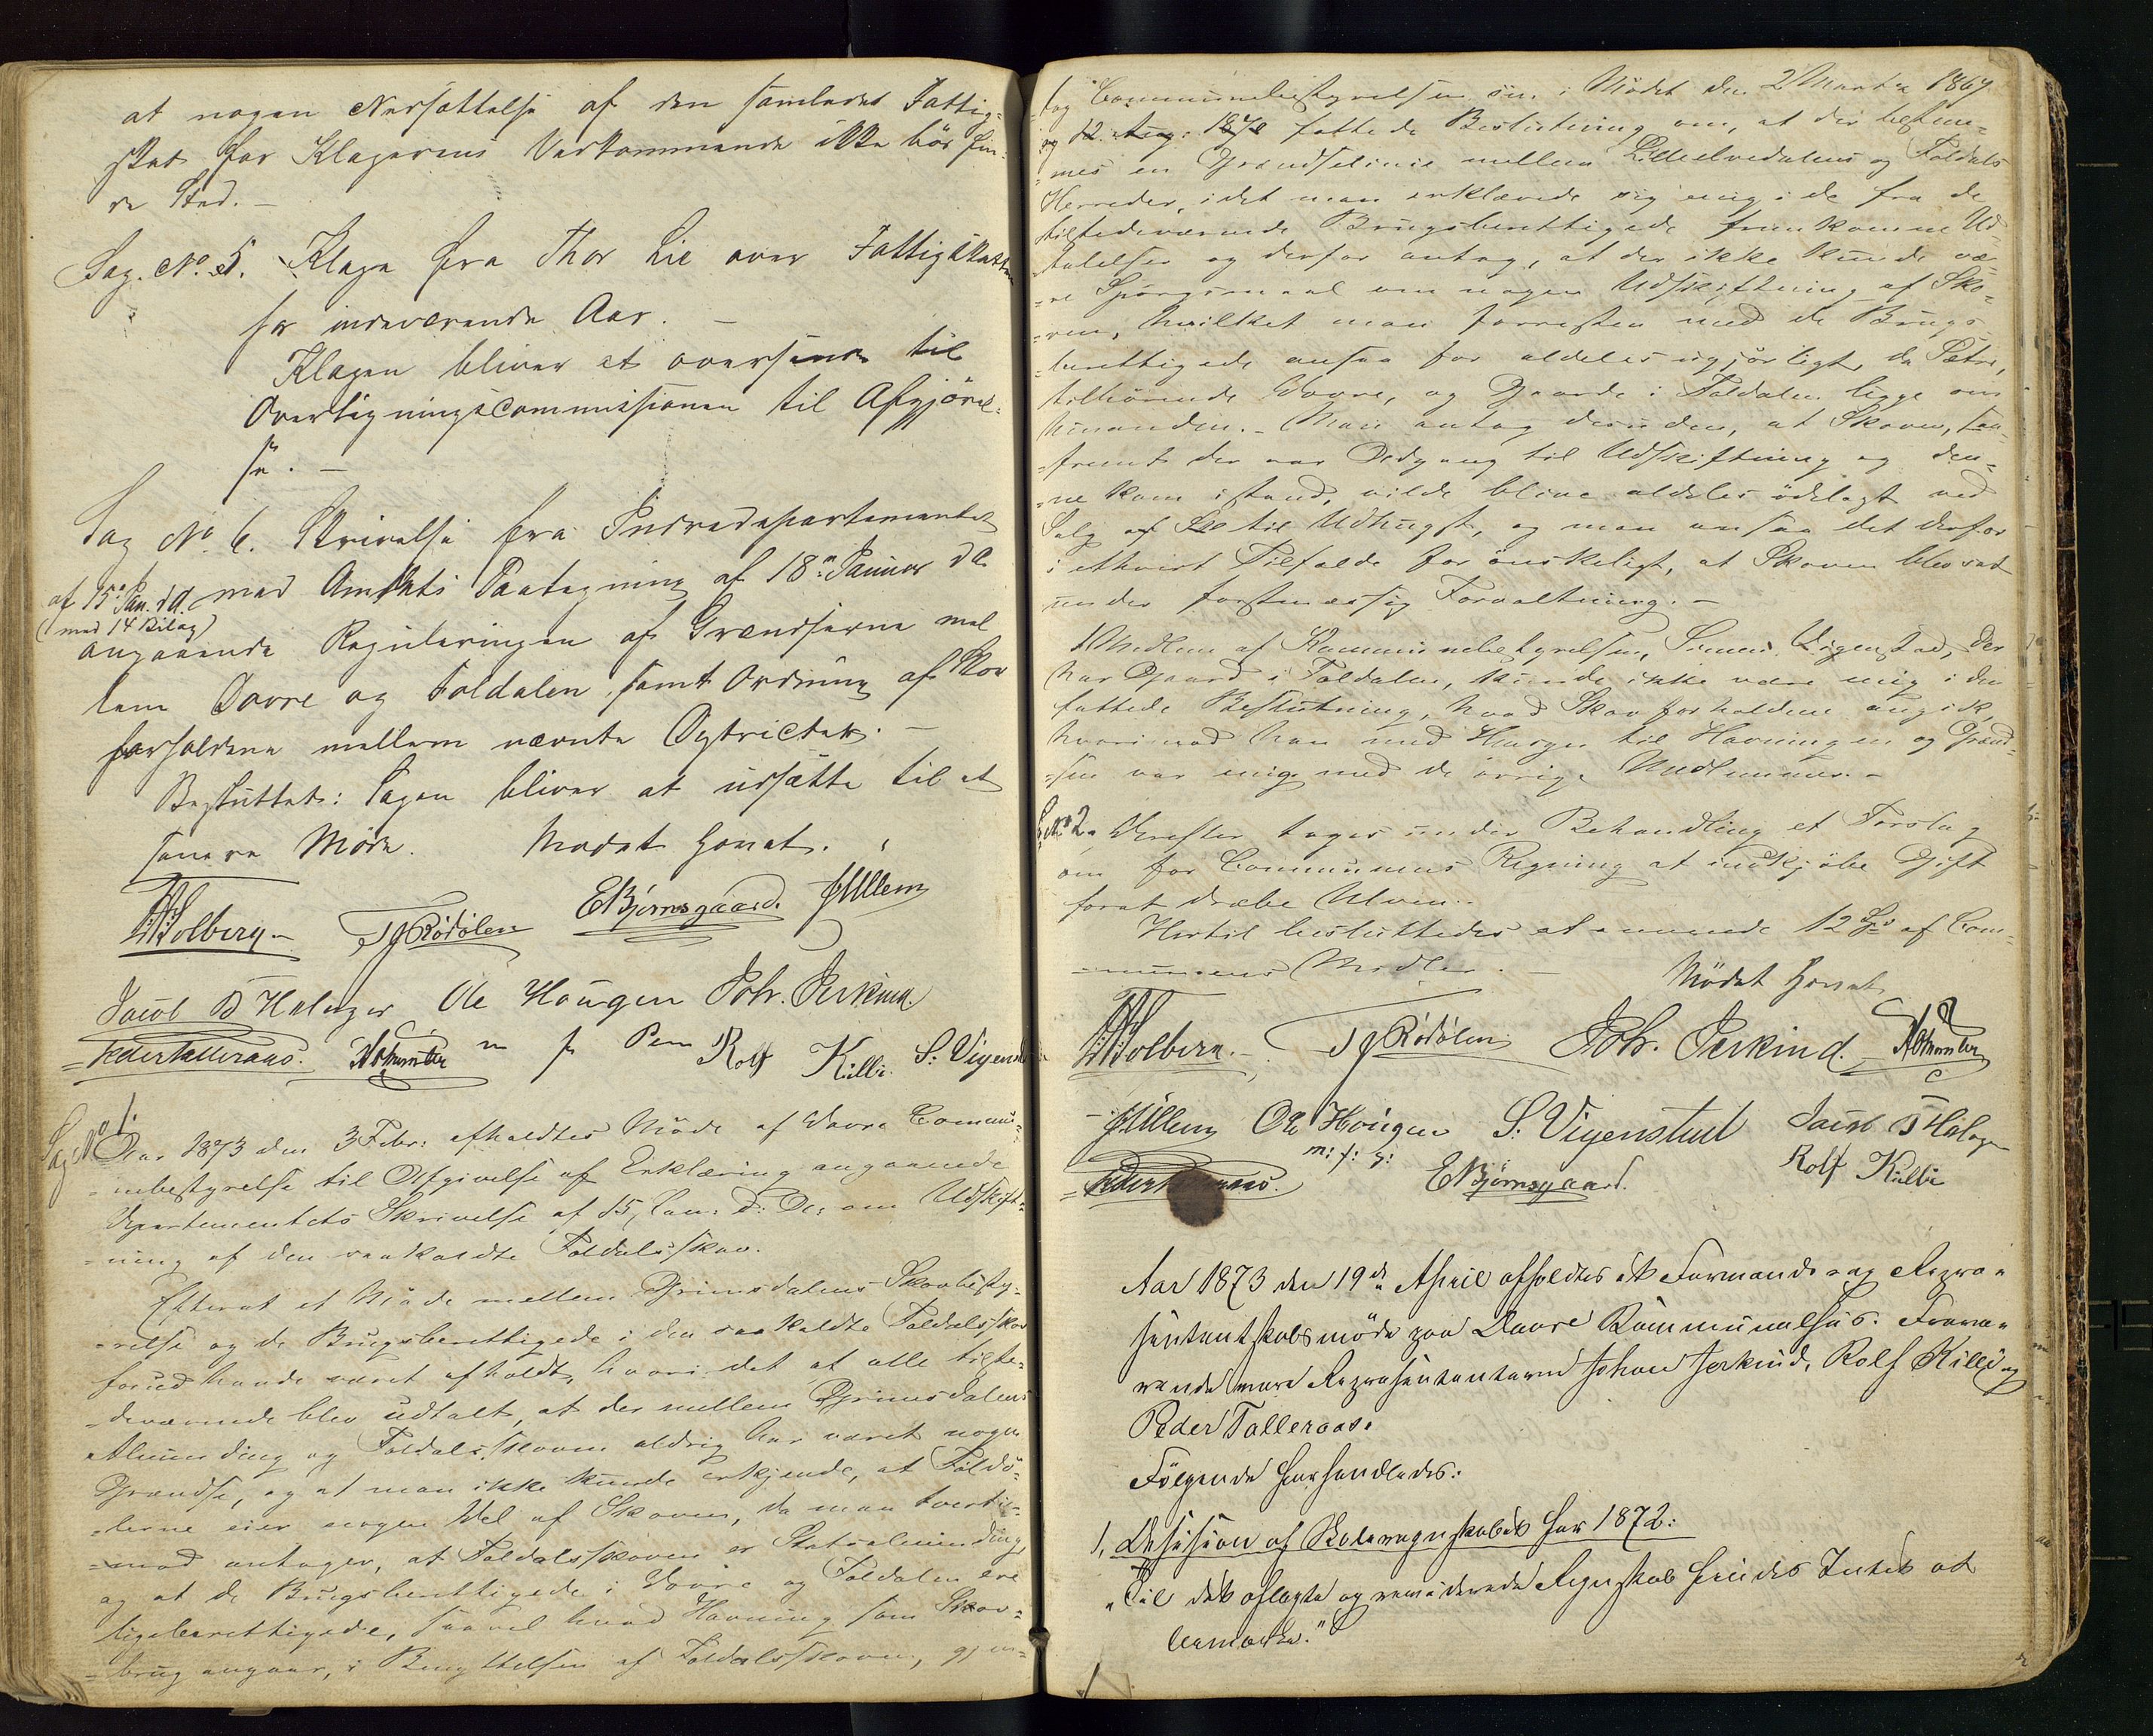 at nogen Nedsættelse af den samlede Fattig-
skat for Klagerens Vedkommende ikke bör fin-
de Sted. –
Sag. No. 5. Klage fra Thor Lie over Fattigskatten
for indeværende Aar. –
Klagen bliver at oversende til
Overligningscommissionen til Afgjörel-
se. –
Sag No. 6. Skrivelse fra Indredepartementet
af 15de Jan. d.A. med Amtets Paategning af 18de Januar d.A.
(med 14 Bilag)
angaaende Reguleringen af Grændserne mel
lem Dovre og Foldalen samt Ordning af Skov
forholdene mellem nævnte Distrikter. –
Besluttet: Sagen bliver at udsætte til et
senere Möde. Mödet hævet.
Holberg – T J Rödölen E Bjørnsgaard. J Ullern
Jacob T Halager Ole Hougen Joh. Jerkind.
Peder Talleraas. m f Pen Rolf Killi. S: Vigenstad
Sag No 1. Aar 1873 den 3 Febr: afholdtes Möde af Dovre Commu-
nebestyrelse til Afgivelse af Erklæring angaaende
Departementets Skrivelse af 15 Jan: d: A: om Udskift-
ning af den saakaldte Foldalsskov.
Efterat et Möde mellem Grimsdalens Skovbesty-
relse og de Brugsberettigede i den saakaldte Foldalsskov
forud havde været afholdt, hvori det af alle tilste-
deværende blev udtalt, at der mellem Grimsdalens
Almending og Foldalsskoven aldrig har været nogen
Grændse, og at man ikke kunde erkjende, at Foldö-
lerne eier nogen Del af Skoven, da man tverti-
mod antager, at Foldalsskoven er Statsalmending
og at de Brugsberettigede i Dovre og Foldalen ere
ligeberettigede, saavel hvad Havning som Skov-
brug angaar, i Benyttelsen af Foldalsskoven, gjen-
tog Communebestyrelsen sin i Mödet den 2 Marts 1867
og 12. Aug: 1872 fattede Beslutning om, at der bestem-
mes en Grændselinie mellem Lilleelvedalens og Foldals
Herreder, idet man erklærede sig enig i de fra de
tilstedeværende Brugsberettigede fremkomne Ud-
talelser og derfor antog, at der ikke kunde væ-
re Spörgsmaal om nogen Udskiftning af Sko-
ven, hvilket man forresten med de Brugs-
berettigede ansaa for aldeles ugjörligt, da Sætre,
tilhörende Dovre, og Gaarde i Foldalen ligge om
hinanden. – Man antog desuden, at Skoven, saa-
fremt der var Adgang til Udskiftning og den-
ne kom istand, vilde blive aldeles ödelagt ved
Salg af til Udhugst, og man ansaa det derfor
i ethvert Tilfælde for önskeligt, at Skoven blev sat
under forstmæssig Forvaltning. –
1 Medlem af Kommunebestyrelsen, Simen Vigenstad, der
har Gaard i Foldalen, kunde ikke være enig i den
fattede Beslutning, hvad Skovforholdene angik,
hvorimod han med Hensyn til Havningen og Grænd-
sen var enig med de övrige Medlemmer. –
Sag No 2. Derefter toges under Behandling et Forslag
om for Communens Regning at indkjöbe Gift
forat dræbe Ulven. –
Hertil besluttedes at anvende 12 Spd af Com-
munens Midler. –
Mödet hævet
Holberg. – T J Rödölen Joh. Jerkind.
J Ullern Ole Hougen S. Vigenstad Jacob T Halager
m: f: P: Rolf Killi
Peder Talleraas. E Bjørnsgaard.
Aar 1873 den 19de April afholdtes et Formands- og Repræ-
sentantskabsmöde paa Dovre Kommunelhus. Fravæ-
rende vare Repræsentanterne Johan Jerkind, Rolf Killi og
Peder Talleraas.
Fölgende forhandledes:
1, Decision af Skoleregnskabet for 1872:
"Til det aflagte og reviderede Regnskab findes Intet at
bemærke."